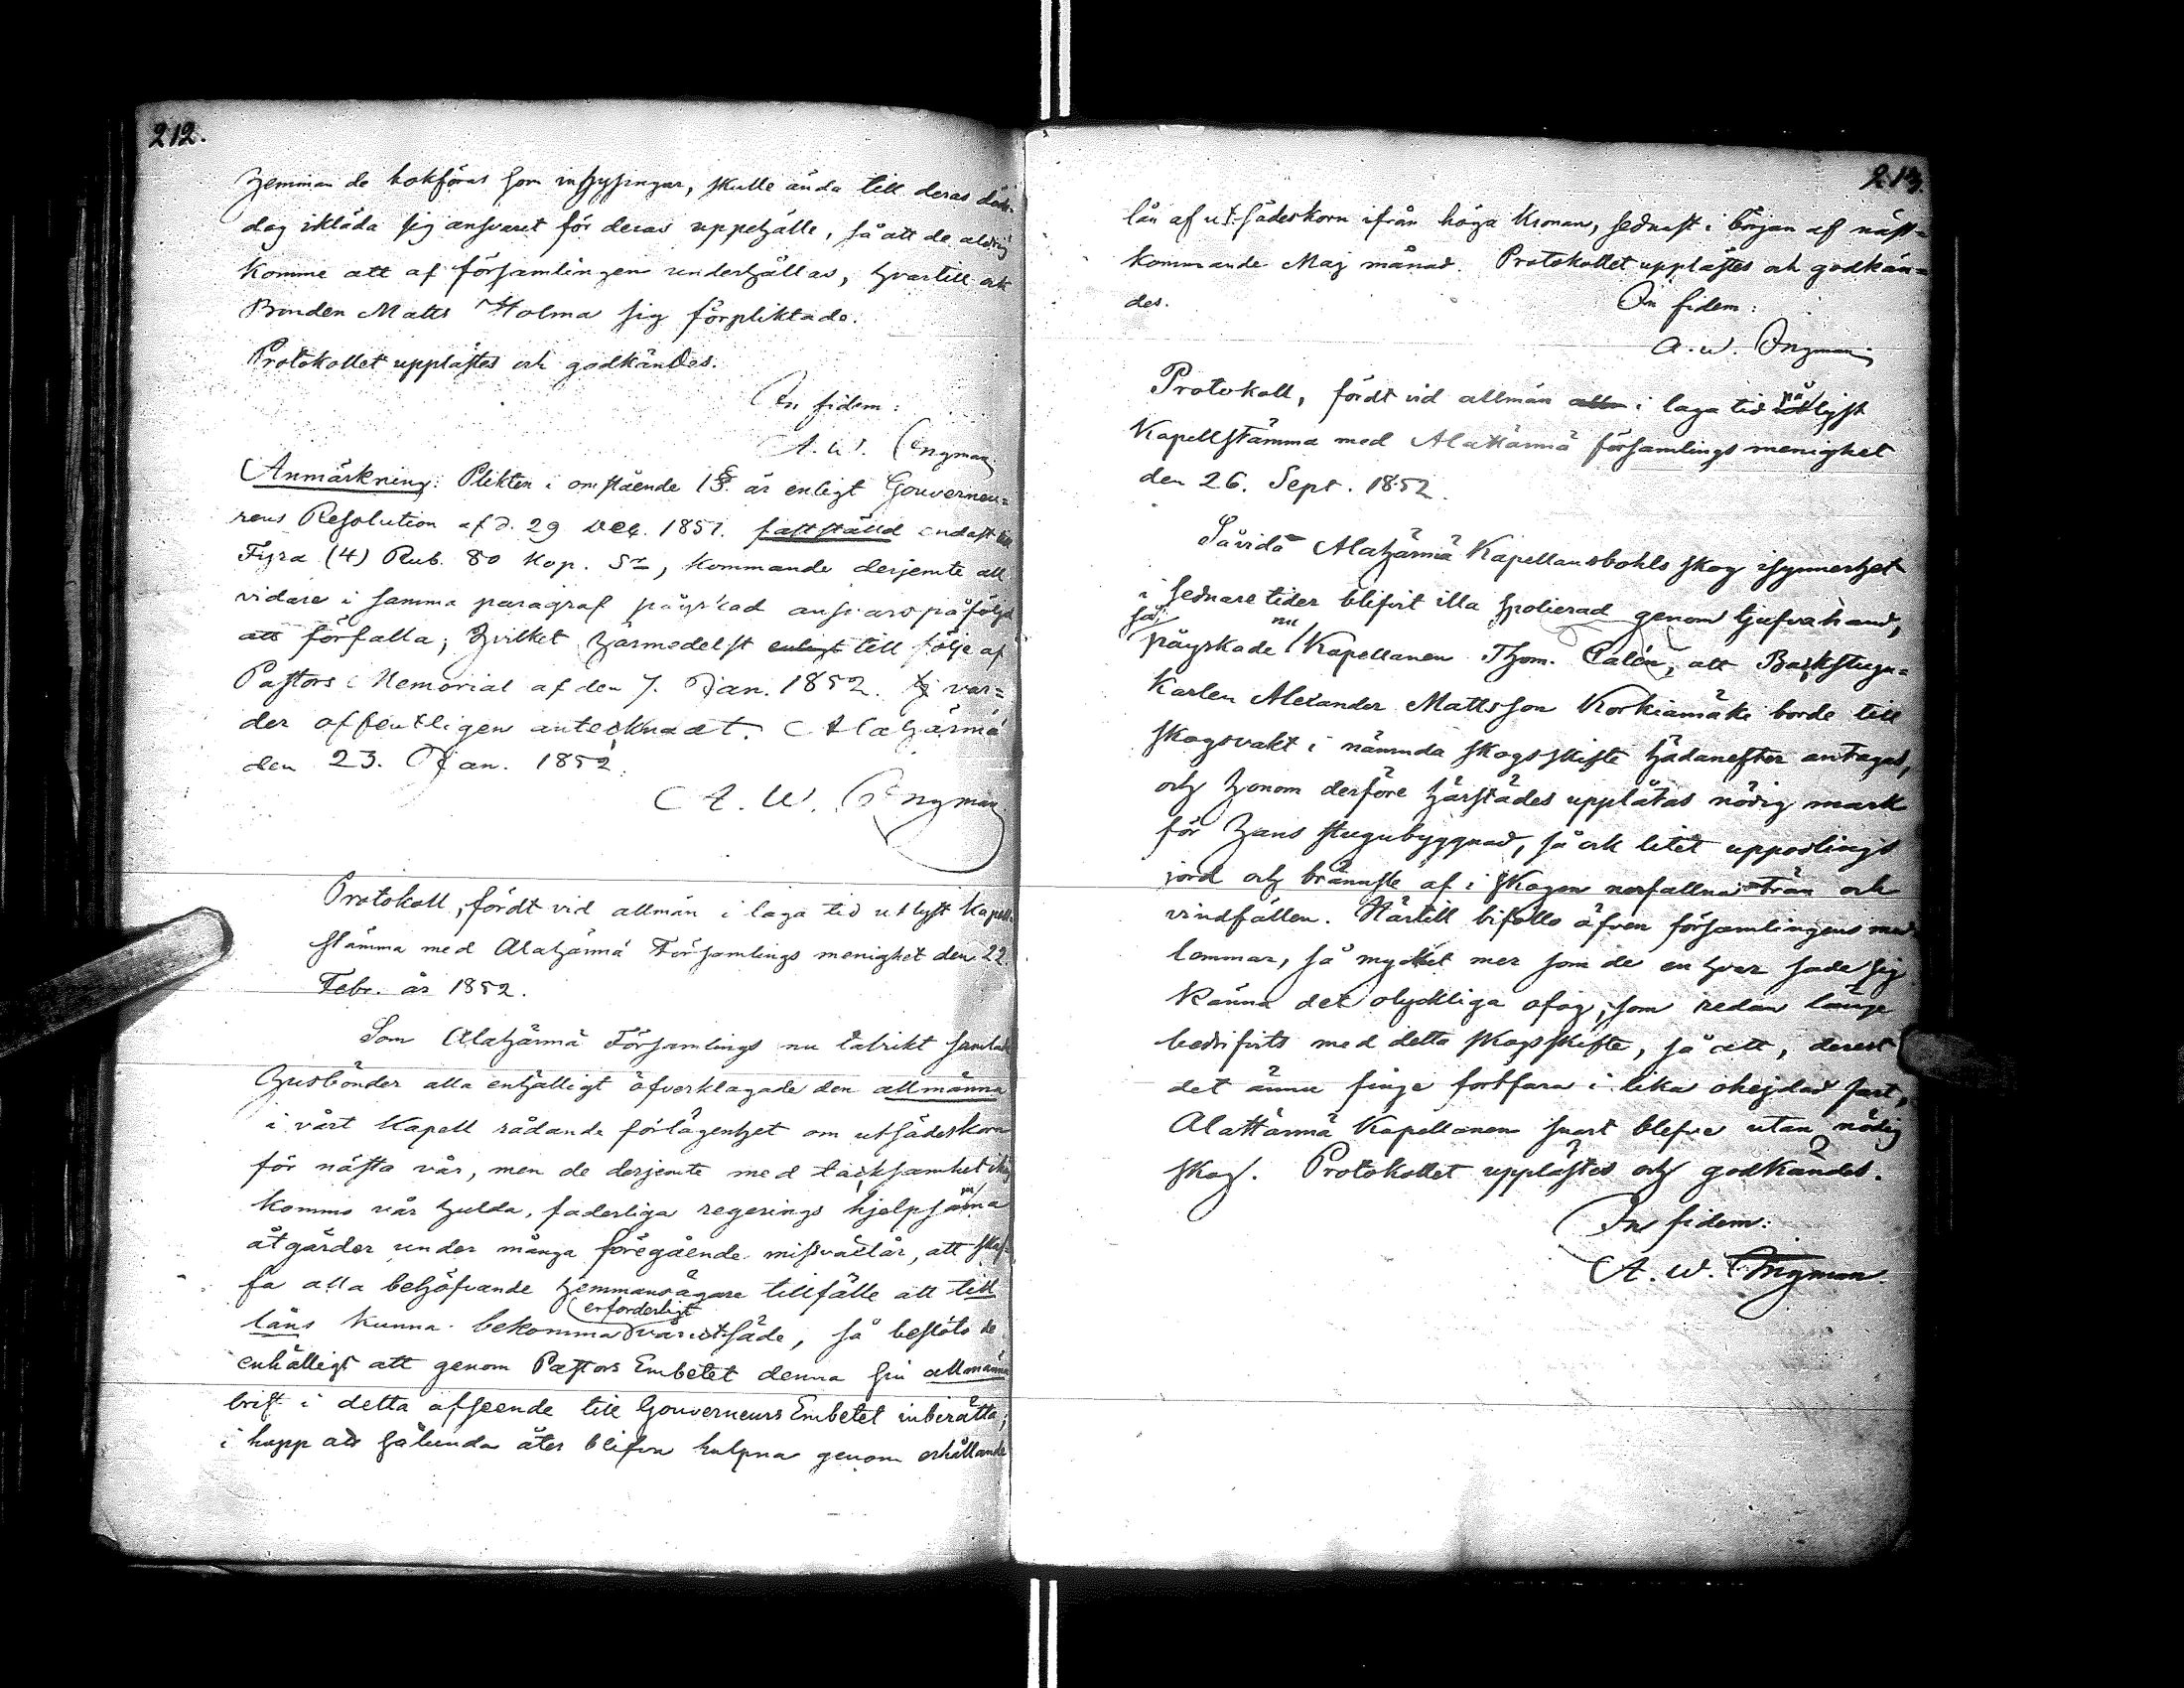 212.
hemman de bokföras som inhysingar, skulle ända till deras döds-
dag ikläda sig ansvaret för deras uppehälle, så att de aldrig
komme att af församlingen underhållas, hvartill ock
Bonden Matts Holma sig förpliktade.
Protokollet upplästes och godkändes.
In fidem:
A. W. Ingman
Anmärkning: Plikten i omstående 1 §. är enligt Gouverneu=
rens Resolution af d. 29 Dec. 1851. fastställd endast till
Fyra (4) Rub. 80 kop. Sr, kommande derjemte all
vidare i samma paragraf påyrkad ansvarspåföljd
att förfalla; hvilket härmedelst enligt till följe af
Pastors Memorial af den 7. Jan. 1852. var=
der offentligen antecknadt. Alahärmä
den 23. Jan. 1852.
A. W. Ingman
Protokoll, fördt vid allmän i laga tid utlyst Kapell-
stämma med Alahärmä Församlings menighet den 22.
Febr. år 1852.
Som Alahärmä Församlings nu talrikt samlade
husbönder alla enhälligt öfverklagade den allmänna
i vårt Kapell rådande förlägenhet om utsädeskorn
för nästa vår, men de derjemte med tacksamhet ihåg
komme vår hulda, faderliga regerings hjelpsamma
åtgärder under många föregående missväxtår, att skaf-
fa alla behöfvande hemmansägare tillfälle att till
låns kunna bekomma erforderligt vårutsäde, så beslöts de
enhälligt att genom Pastors Embetet denna sin allmänna
brist i detta afseende till Gouverneurs Embetet inberätta;
i hopp att sålunda åter blifva hulpna genom erhållande
213.
lån af utsädeskorn ifrån höga Kronan, sednast i början af näst=
kommande Maj månad. Protokollet upplästes och godkän=
des.
In fidem:
A. W. Ingman
Protokoll, fördt vid allmän alla i laga tid pålyst
Kapellstämma med Alahärmä församlings menighet
den 26. Sept. 1852.
Såvida Alahärmä Kapellansbohls skog isynnerhet
i sednare tider blifvit illa spolierad genom tjufvahand,
så påyrkade nu Kapellanen Thom. Calén, att Backstugu-
karlen Alexander Mattsson Korkiamäki borde till
skogsvakt i nämnda skogsskifte hädanefter antagas,
och honom derföre härstädes upplåtas nödig mark
för hans stugubyggnad, så ock litet upodlings
jord och bränsle af i skogen nerfallna trän och
vindfällen. Härtill biföllo äfven församlingens med-
lemmar, så mycket mer som de en hvar sade sig
känna det olyckliga ofog, som redan länge
bedrifvits med detta skogsskifte, så att, derest
det ännu finge fortfara i lika ohejdad fart,
Alahärmä Kapellanen snart blefve utan nödig
skog. Protokollet upplästes och godkändes.
In fidem:
A. W. Ingman.